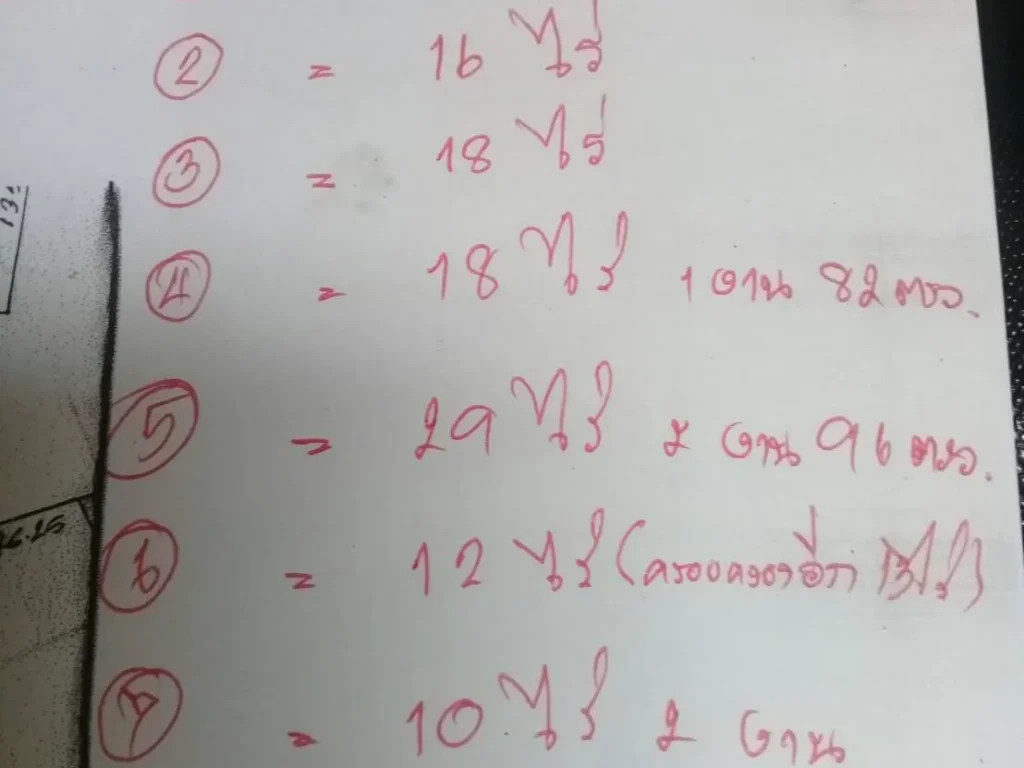 2 = 16 ไร่
3 = 18 ไร่
4 = 18 ไร่ 1 งาน 82 ตรว.
5 = 29 ไร่ 2 งาน 96 ตรว.
6 = 12 ไร่ (ครอบครองอีก ไร่)
7 = 10 ไร่ 2 งาน